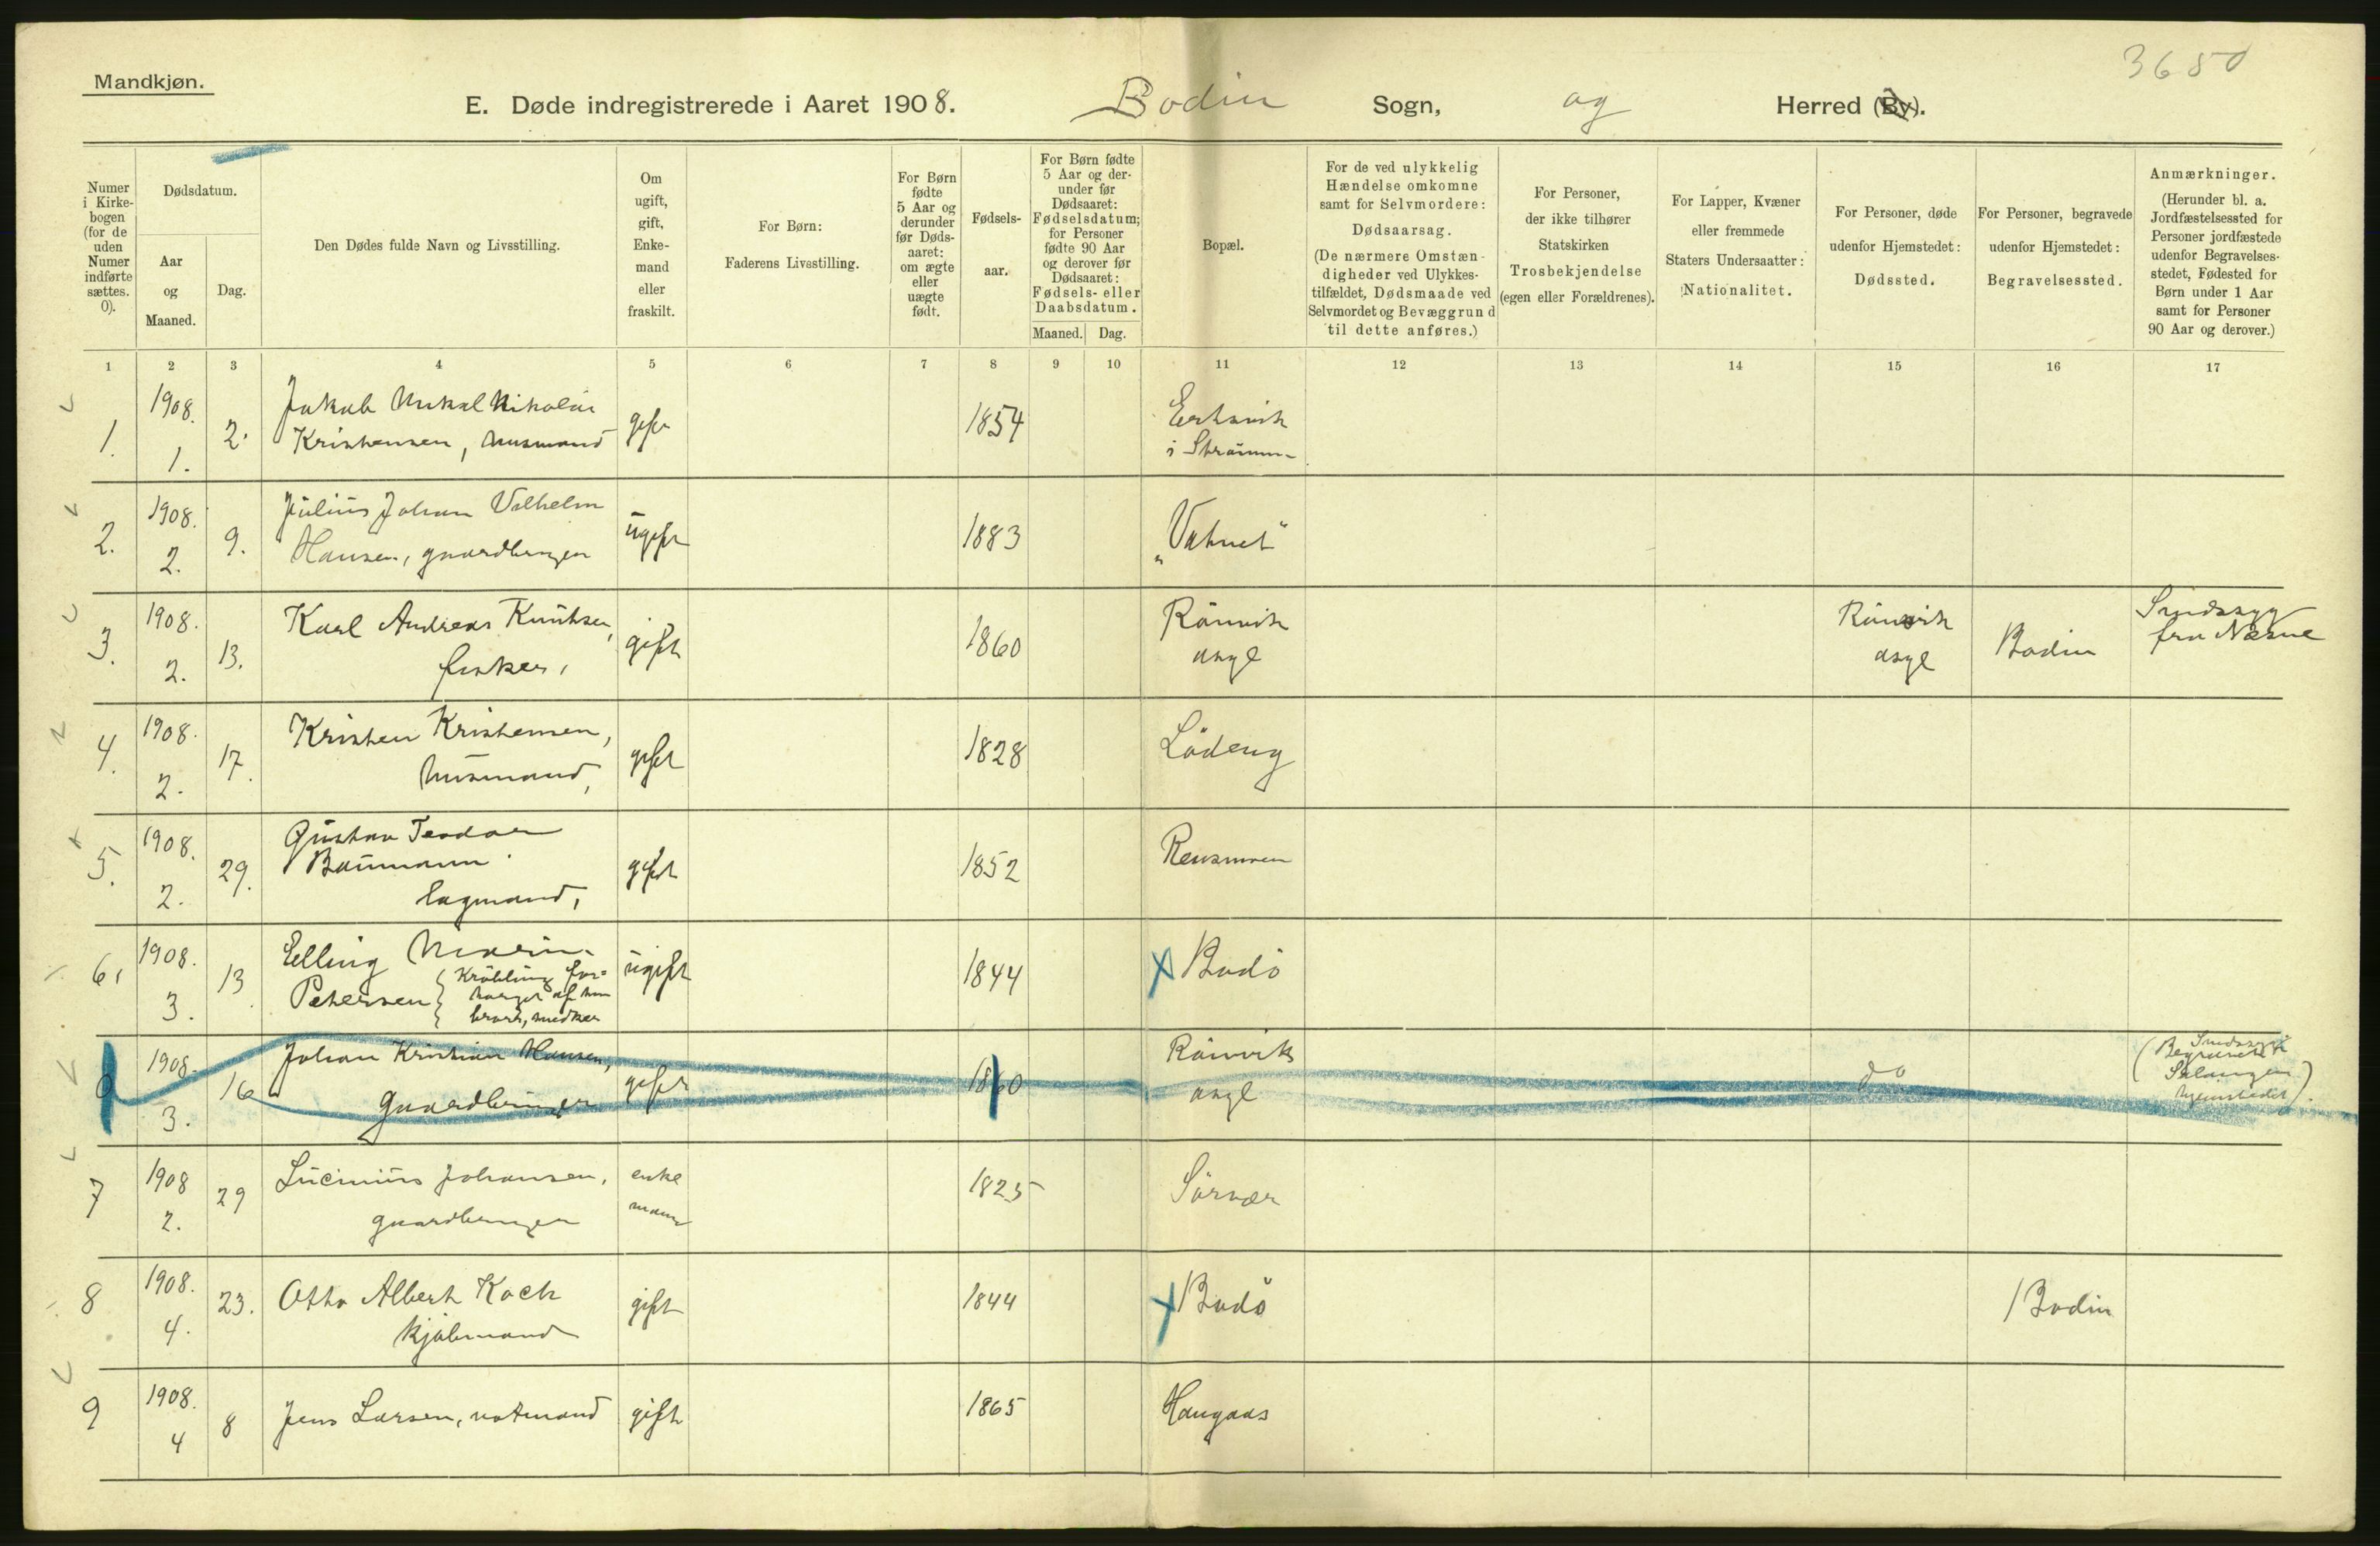 Mandkjøn.
3650
E. Døde indregistrerede i Aaret 1908. Bodin Sogn, og Herred (By).
Numer i Kirkebogen (for de uden Numer indførte sættes. 0).
Dødsdatum.
Aar og Maaned.
Dag.
Den Dødes fulde Navn og Livsstilling.
Om ugift, gift, Enkemand eller fraskilt.
For Børn: Faderens Livsstilling.
For Børn fødte 5 Aar og derunder før Dødsaaret: om ægte eller uægte født.
Fødselsaar.
For Børn fødte 5 Aar og derunder før Dødsaaret: Fødselsdatum; for Personer fødte 90 Aar og derover før Dødsaaret: Fødsels- eller Daabsdatum.
Maaned. Dag.
Bopæl.
For de ved ulykkelig Hændelse omkomne samt for Selvmordere: Dødsaarsag. (De nærmere Omstændigheder ved Ulykkestilfældet, Dødsmaade ved Selvmordet og Bevæggrund til dette anføres.)
For Personer, der ikke tilhører Statskirken Trosbekjendelse (egen eller Forældrenes).
For Lapper, Kvæner eller fremmede Staters Undersaatter: Nationalitet.
For Personer, døde udenfor Hjemstedet: Dødssted.
For Personer, begravede udenfor Hjemstedet: Begravelsessted.
Anmærkninger. (Herunder bl. a. Jordfæstelsessted for Personer jordfæstede udenfor Begravelsesstedet, Fødested for Børn under 1 Aar samt for Personer 90 Aar og derover.)
1 2 3 4 5 6 7 8 9 10 11 12 13 14 15 16 17
1. 1908. 1. 2. Jakob Mikal Nikolai
Kristensen, husmand gift 1854
i Strömmen
2. 1908. 2. 9. Julius Johan Vilhelm
Hansen, gaardbruger ugift 1883 "Vatnet"
3. 1908. 2. 13. Karl Andreas Knutsen,
fisker, gift 1860 Rönvik
asyl Rönvik
asyl Bodin Sindssyg
fra Nesne
4. 1908. 2. 17. Kristen Kristensen,
husmand, gift 1828 Löding
5. 1908. 2. 29. Gustav Teodor
Baumann
lagmand, gift 1852 Rensmoen
6. 1908. 3. 13 Elling Martin
Petersen ugift 1844 x Bodö
0 1908. 3. 16 Johan Kristian Hansen,
gaardbruger gift 1860 Rönvik
asyl do (Sindssyg
Begravet i
Salangen
hjemstedet).
7 1908 2. 29 Lucinius Johansen,
gaardbruger enke
mand 1825 Sörvær
8 1908. 4. 23. Otto Albert Koch
kjöbmand gift 1844 x Bodö Bodin
9 1908. 4 8 Jens Larsen, notmand gift 1865 Haugaas